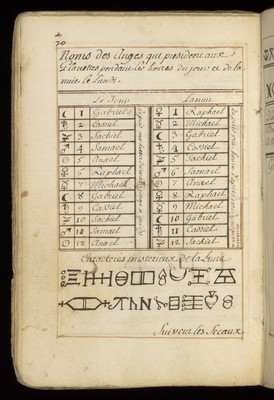 70
Noms des Anges qui president aux
Planettes pendant les heures du jour et de la
nuit le Lundi.
Le Jour
La nuit
1 Gabriel
2
3 Sachiel
4 Samael
5 Anael
6 Raphael
7 Michael
8 Gabriel
9 Cassiel
10 Sachiel
11 Samael
12 Anael
1 Raphael
2 Michael
3 Gabriel
4 Cassiel
5 Sachiel
6 Samael
7 Anael
8 Raphael
9 Michael
10 Gabriel
11 Cassiel
12 Sachiel
Caracteres misterieux de la Lune
Suivent les Sceaux